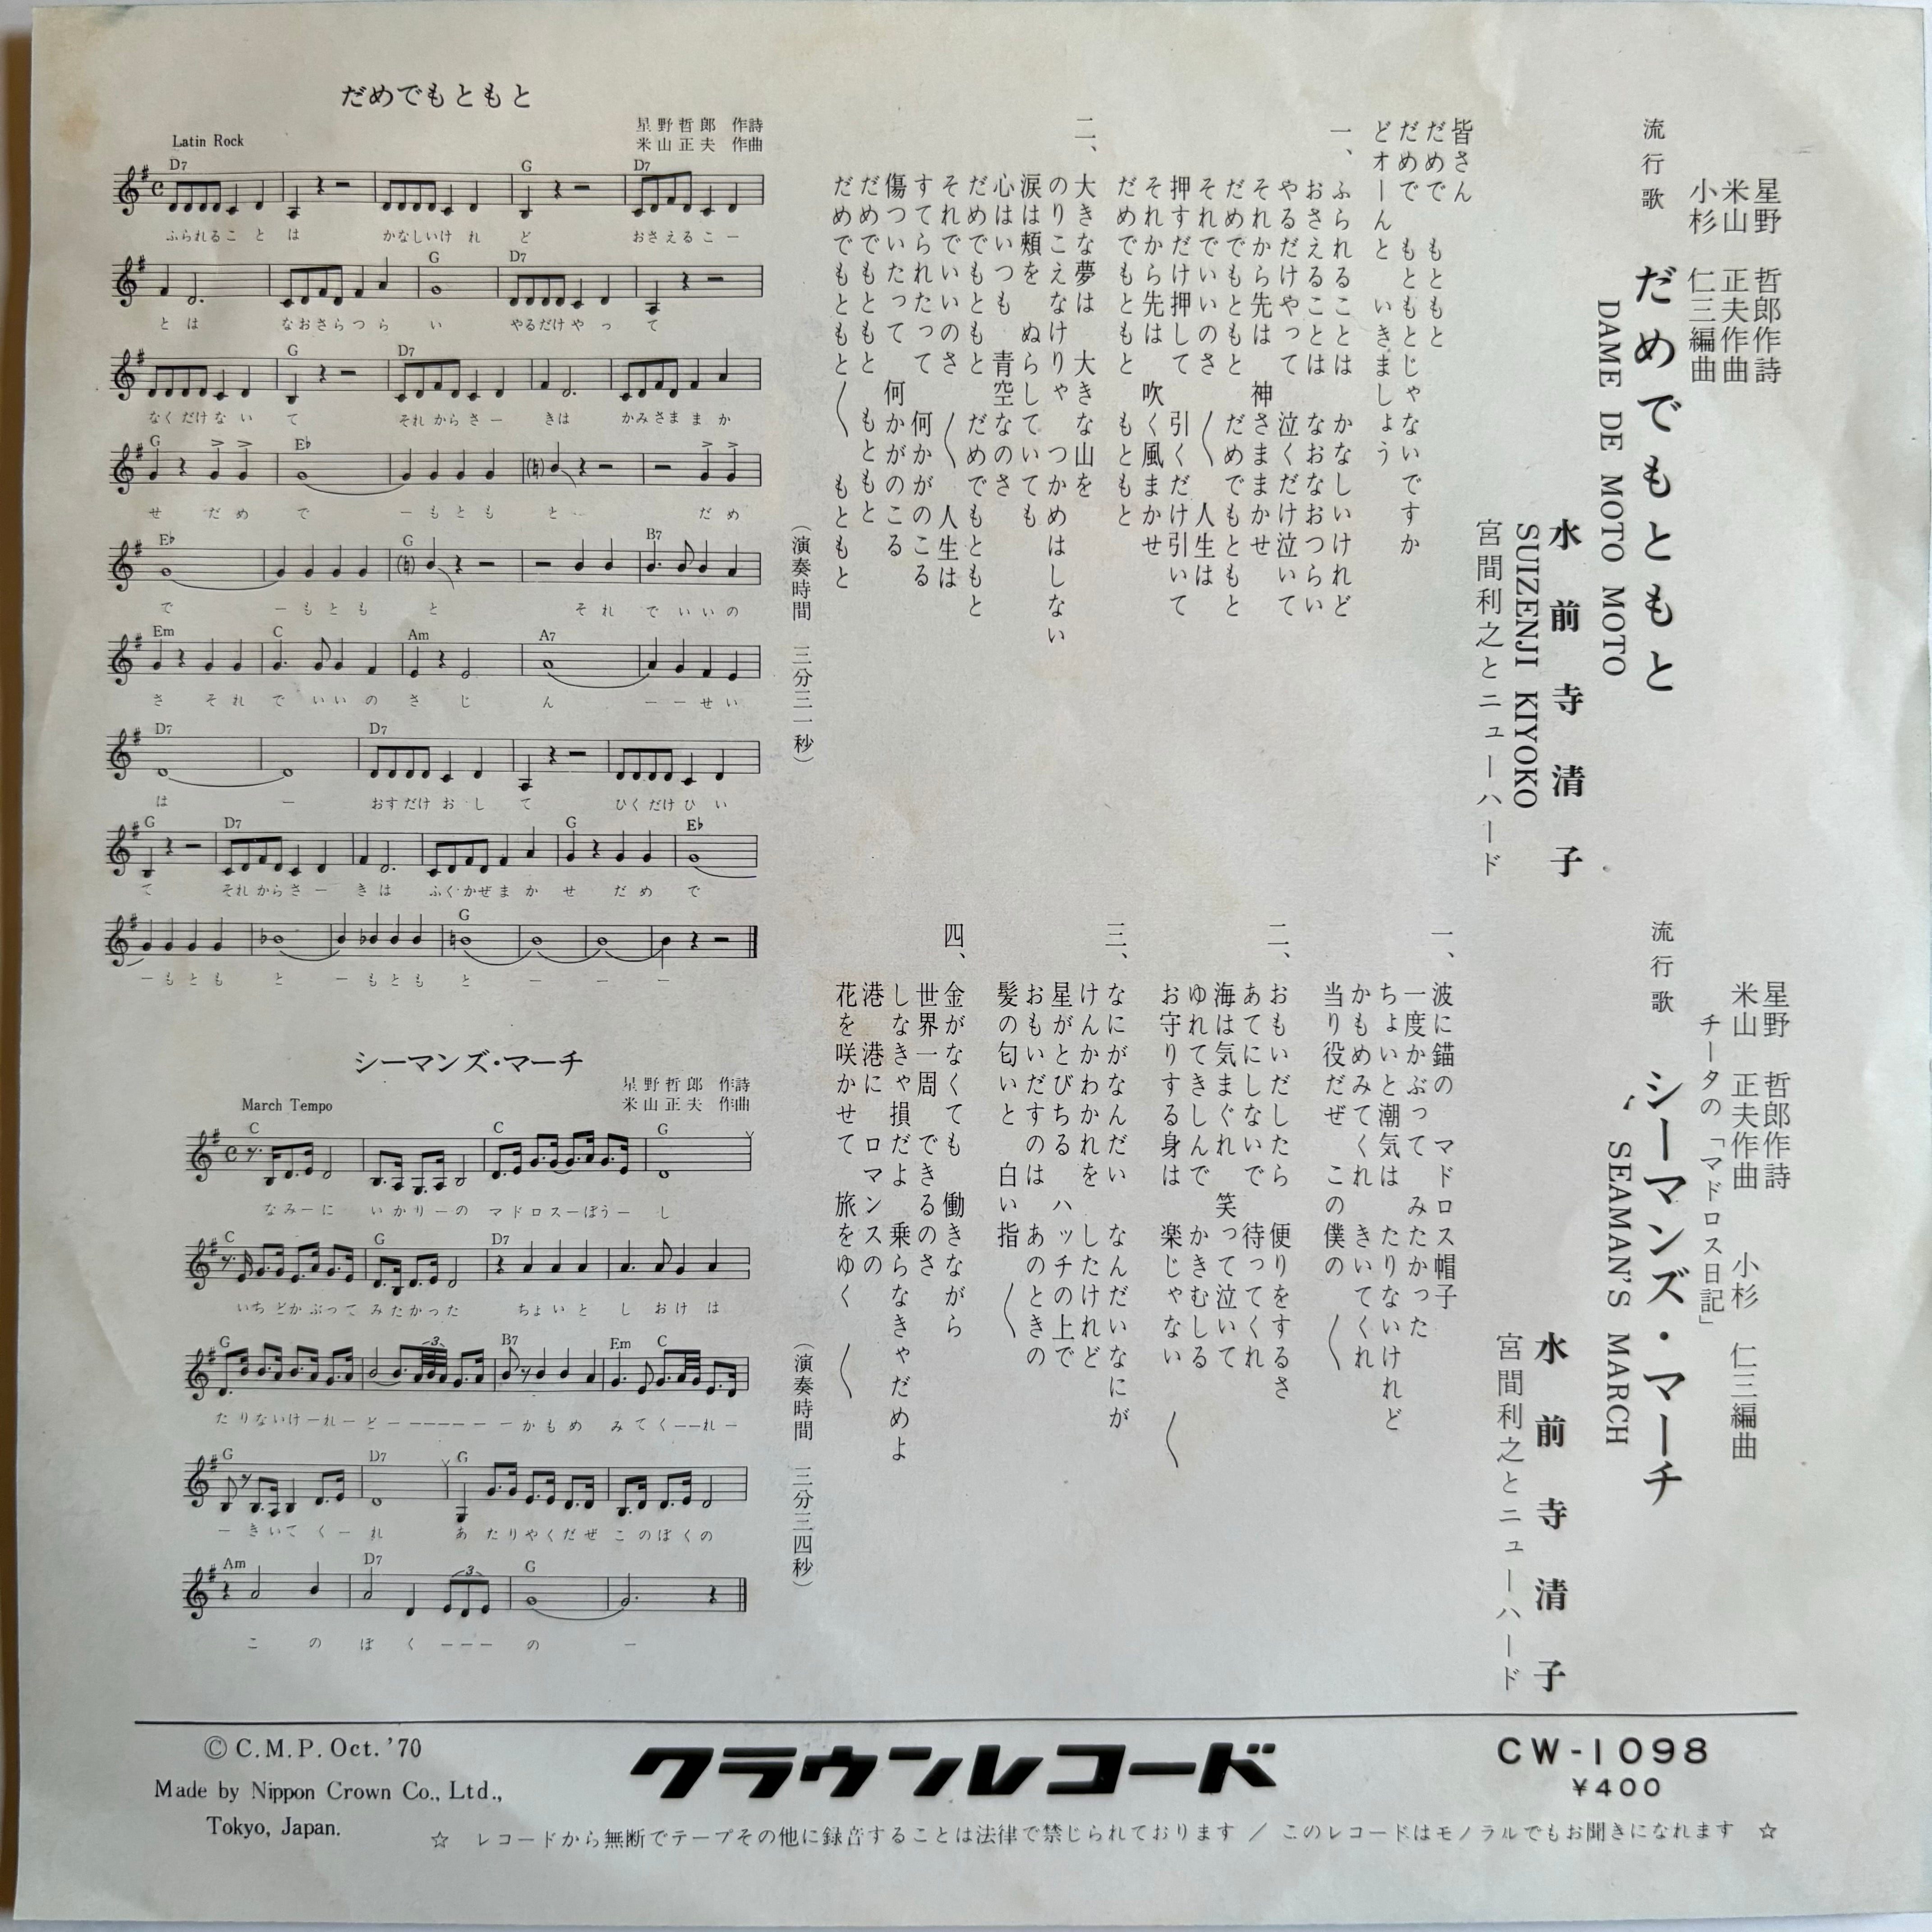 星野 哲郎作詩
米山 正夫作曲
小杉 仁三編曲
流行歌 だめでもともと
DAME DE MOTO MOTO
水前寺清子
SUIZENJI KIYOKO
宮間利之とニューハード
皆さん
だめで もともと
だめで もともとじゃないですか
どオーんと いきましょう
一、ふられることは かなしいけれど
おさえることは なおなおつらい
やるだけやって 泣くだけ泣いて
それから先は 神さままかせ
だめでもともと だめでもともと
それでいいのさ 〱 人生は
押すだけ押して 引くだけ引いて
それから先は 吹く風まかせ
だめでもともと もともと
二、大きな夢は 大きな山を
のりこえなけりゃ つかめはしない
涙は頬を ぬらしていても
心はいつも 青空なのさ
だめでもともと だめでもともと
それでいいのさ 〱 人生は
すてられたって 何かがのこる
傷ついたって 何かがのこる
だめでもともと もともと
だめでもともと〱 もともと
(演奏時間 三分三一秒)
星野 哲郎作詩
米山 正夫作曲 小杉 仁三編曲
チータの「マドロス日記」
流行歌 シーマンズ・マーチ
SEAMAN'S MARCH
水前寺清子
宮間利之とニューハード
一、波に錨の マドロス帽子
一度かぶって みたかった
ちょいと潮気は たりないけれど
かもめみてくれ きいてくれ
当り役だぜ この僕の 〱
二、おもいだしたら 便りをするさ
あてにしないで 待ってくれ
海は気まぐれ 笑って泣いて
ゆれてきしんで かきむしる
お守りする身は 楽じゃない 〱
三、なにがなんだい なんだいなにが
けんかわかれを したけれど
星がとびちる ハッチの上で
おもいだすのは あのときの
髪の匂いと 白い指 〱
四、金がなくても 働きながら
世界一周 できるのさ
しなきゃ損だよ 乗らなきゃだめよ
港 港に ロマンスの
花を咲かせて 旅をゆく 〱
(演奏時間 三分三四秒)
だめでもともと
星野哲郎 作詩
米山正夫 作曲
Latin Rock
D7 G D7
ふられるこ と は かなしいけ れ ど おさえるこ ー
G D7
と は なおさらつ ら い やるだけや っ て
G D7
なくだけな い て それからさ ー きは かみさま ま か
G E♭
せ だ め で ー も と も と だ め
E♭ G B7
で ー も と も と そ れ で い い の
Em C Am A7
さ そ れ で い い の さ じ ん ー ー せ い
D7 D7
は ー おすだけ お し て ひくだけ ひ い
G D7 G E♭
て それからさ ー き は ふくかぜ ま か せ だ め で
G
ー も と も と ー も と も と ー ー ー
シーマンズ・マーチ
星野哲郎 作詩
米山正夫 作曲
March Tempo
C C G
なみーに いかりーの マドロスーぼうー し
C G D7
いちどかぶって みたかった ちょいと し おけ は
G B7 Em C
たりないけーれーど ー ー ー ー ー ー ー かもめ みてくーーれー
G D7 G
ー きいて くー れ あ たりやくだぜ このぼくの
Am D7 G
こ の ぼ く ー ー ー の ー
© C.M.P. Oct. '70
Made by Nippon Crown Co., Ltd.,
Tokyo, Japan.
クラウンレコード
CW-1098
¥400
☆ レコードから無断でテープその他に録音することは法律で禁じられております / このレコードはモノラルでもお聞きになれます ☆